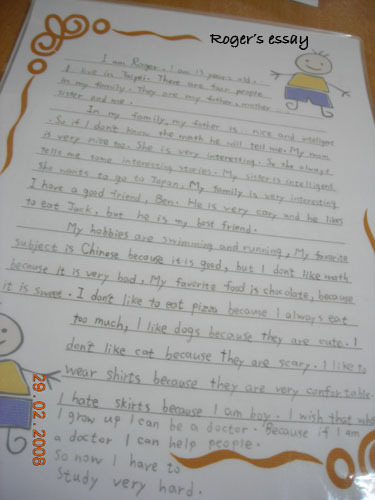 Roger's essay
I am Roger. I am 13 years old.
I live in Taipei. There are four people
in my family. They are my father, mother
sister and me.
In my family, my father is nice and intelligent
. So if I don't know the math he will tell me. My mom
is very nice too. She is very interesting. So she always
tells me some interesting stories. My sister is intelligent.
She wants to go to Japan. My family is very interesting
I have a good friend, Ben. He is very cozy and he likes
to eat Jack, but he is my best friend.
My hobbies are swimming and running, My favorite
subject is Chinese because it is good, but I don't like math
because it is very bad, My favorite food is chocolate, because
it is sweet. I don't like to eat pizza because I always eat
too much, I like dogs because they are cute. I
don't like cat because they are scary. I like to
wear shirts because they are very confortable.
I hate skirts because I am boy. I wish that when
I grow up I can be a doctor. Because if I am
a doctor I can help people.
So now I have to
study very hard.
29.02.2008